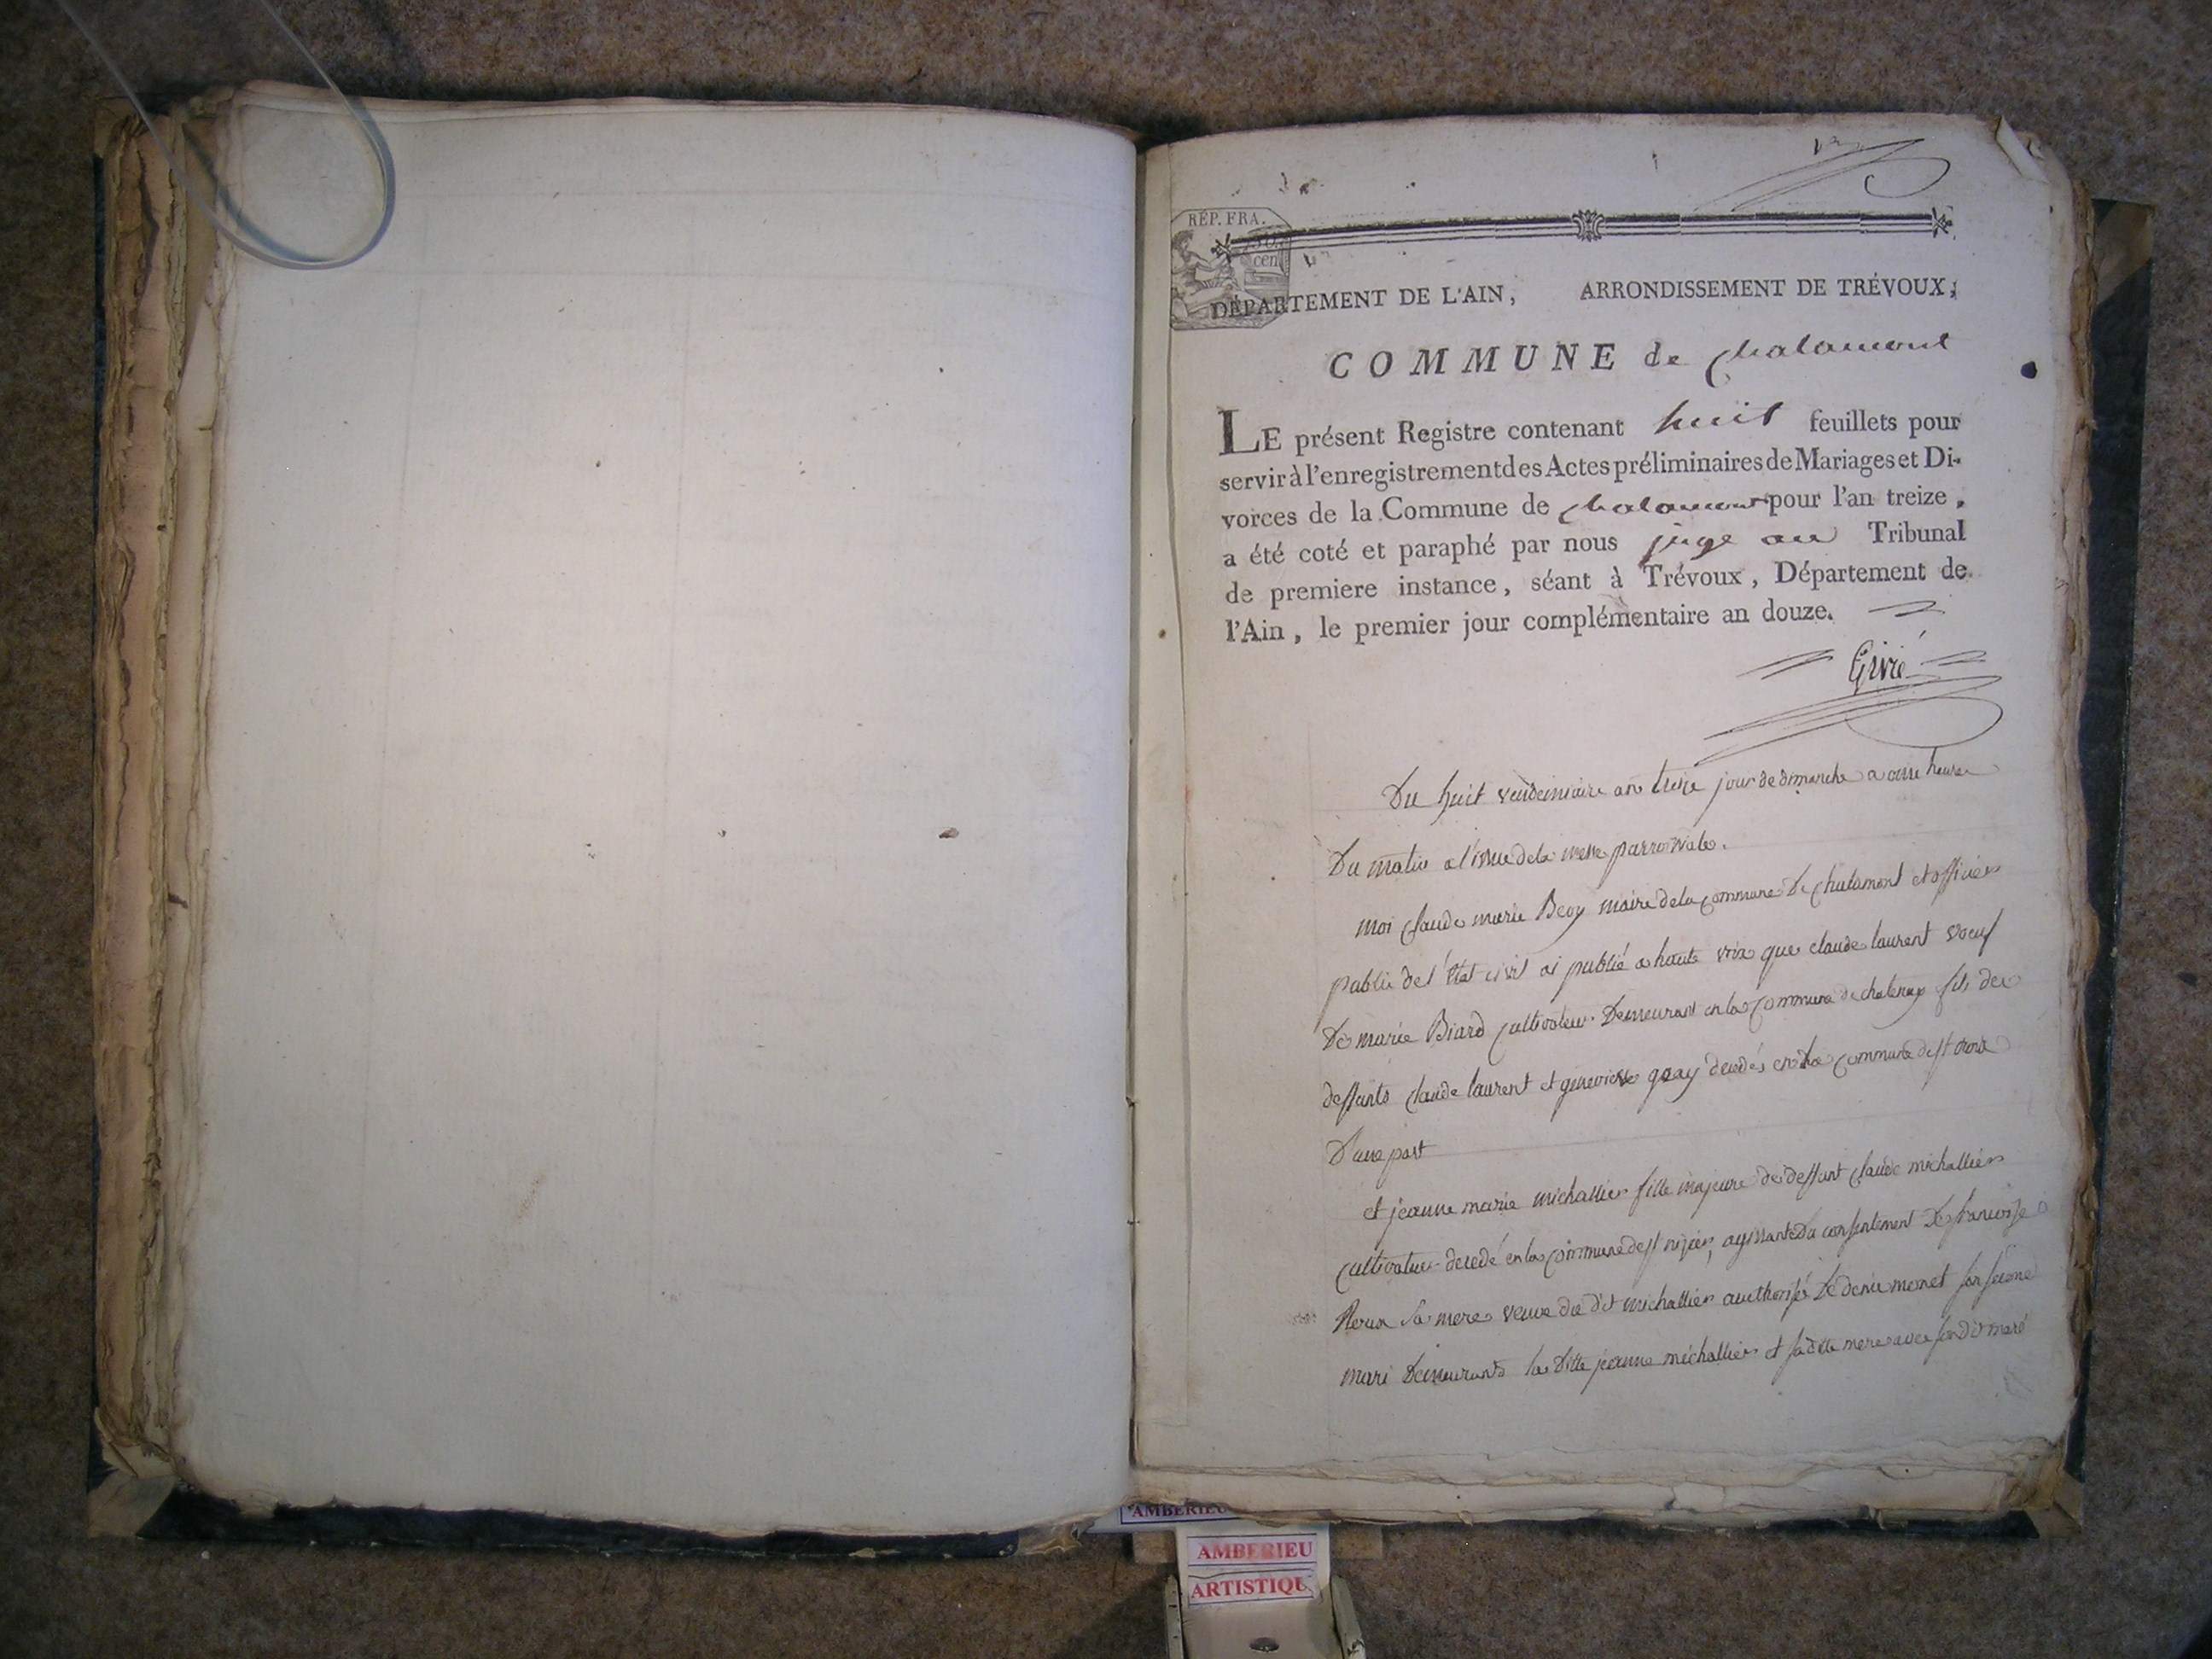 RÉP. FRA.
cen
DÉPARTEMENT DE L'AIN, ARRONDISSEMENT DE TRÉVOUX,
COMMUNE de chalamont
LE présent Registre contenant huit feuillets pour
servir à l'enregistrement des Actes préliminaires de Mariages et Di-
vorces de la Commune de chalamont pour l'an treize,
a été coté et paraphé par nous juge au Tribunal
de premiere instance, séant à Trévoux, Département de
l'Ain, le premier jour complémentaire an douze.
Du huit vendemiaire an treize jour de dimanche a onze heures
Du matin a l'issue de la messe parroissiale.
moi Claude marie maire de la commune De chalamont et officier
public de l'état civil ai publié a haute voix que claude laurent veuf
De marie Biard cultivateur Demeurant en la commune de chatenay fils de
deffunts claude laurent et genevieve decedés en la commune de st croix
D'une part
et jeanne marie michallier fille majeure de deffunt claude michallier
cultivateur decedé en la commune de st nizier, agissante du consentement De francoise
sa mere veuve du dit michallier authorisé De denis monet son second
mari Demeurants la ditte jeanne michallier et sa ditte mere avec son dit mari
AMBERIEU
AMBERIEU
ARTISTIQU